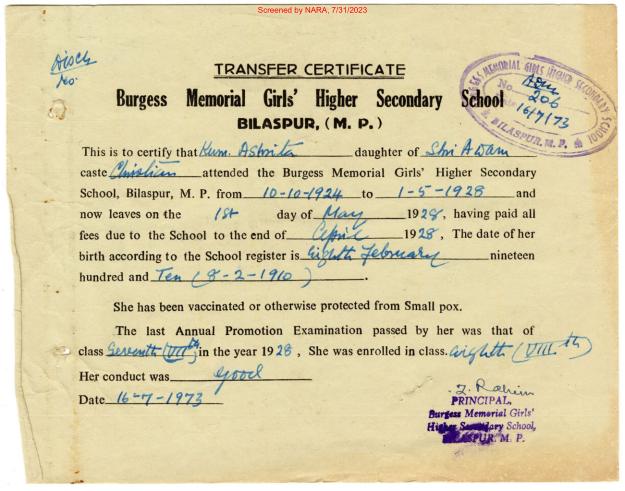 Screened by NARA, 7/31/2023
Disch
No.
TRANSFER CERTIFICATE
Burgess Memorial Girls' Higher Secondary School
BILASPUR, (M. P.)
BURGESS MEMORIAL GIRLS HIGHER SECONDARY SCHOOL
No. 206
16/7/73
BILASPUR. M. P.
This is to certify that Kum. Asbrita daughter of Shri Adam
caste Christian attended the Burgess Memorial Girls' Higher Secondary
School, Bilaspur, M. P. from 10-10-1924 to 1-5-1928 and
now leaves on the 1st day of May 1928, having paid all
fees due to the School to the end of April 1928, The date of her
birth according to the School register is Eighth February nineteen
hundred and Ten (8-2-1910).
She has been vaccinated or otherwise protected from Small pox.
The last Annual Promotion Examination passed by her was that of
class Seventh (VIIth) in the year 1928, She was enrolled in class. eighth (VIIIth)
Her conduct was Good
Date 16-7-1973
PRINCIPAL,
Burgess Memorial Girls'
Higher Secondary School,
BILASPUR. M. P.